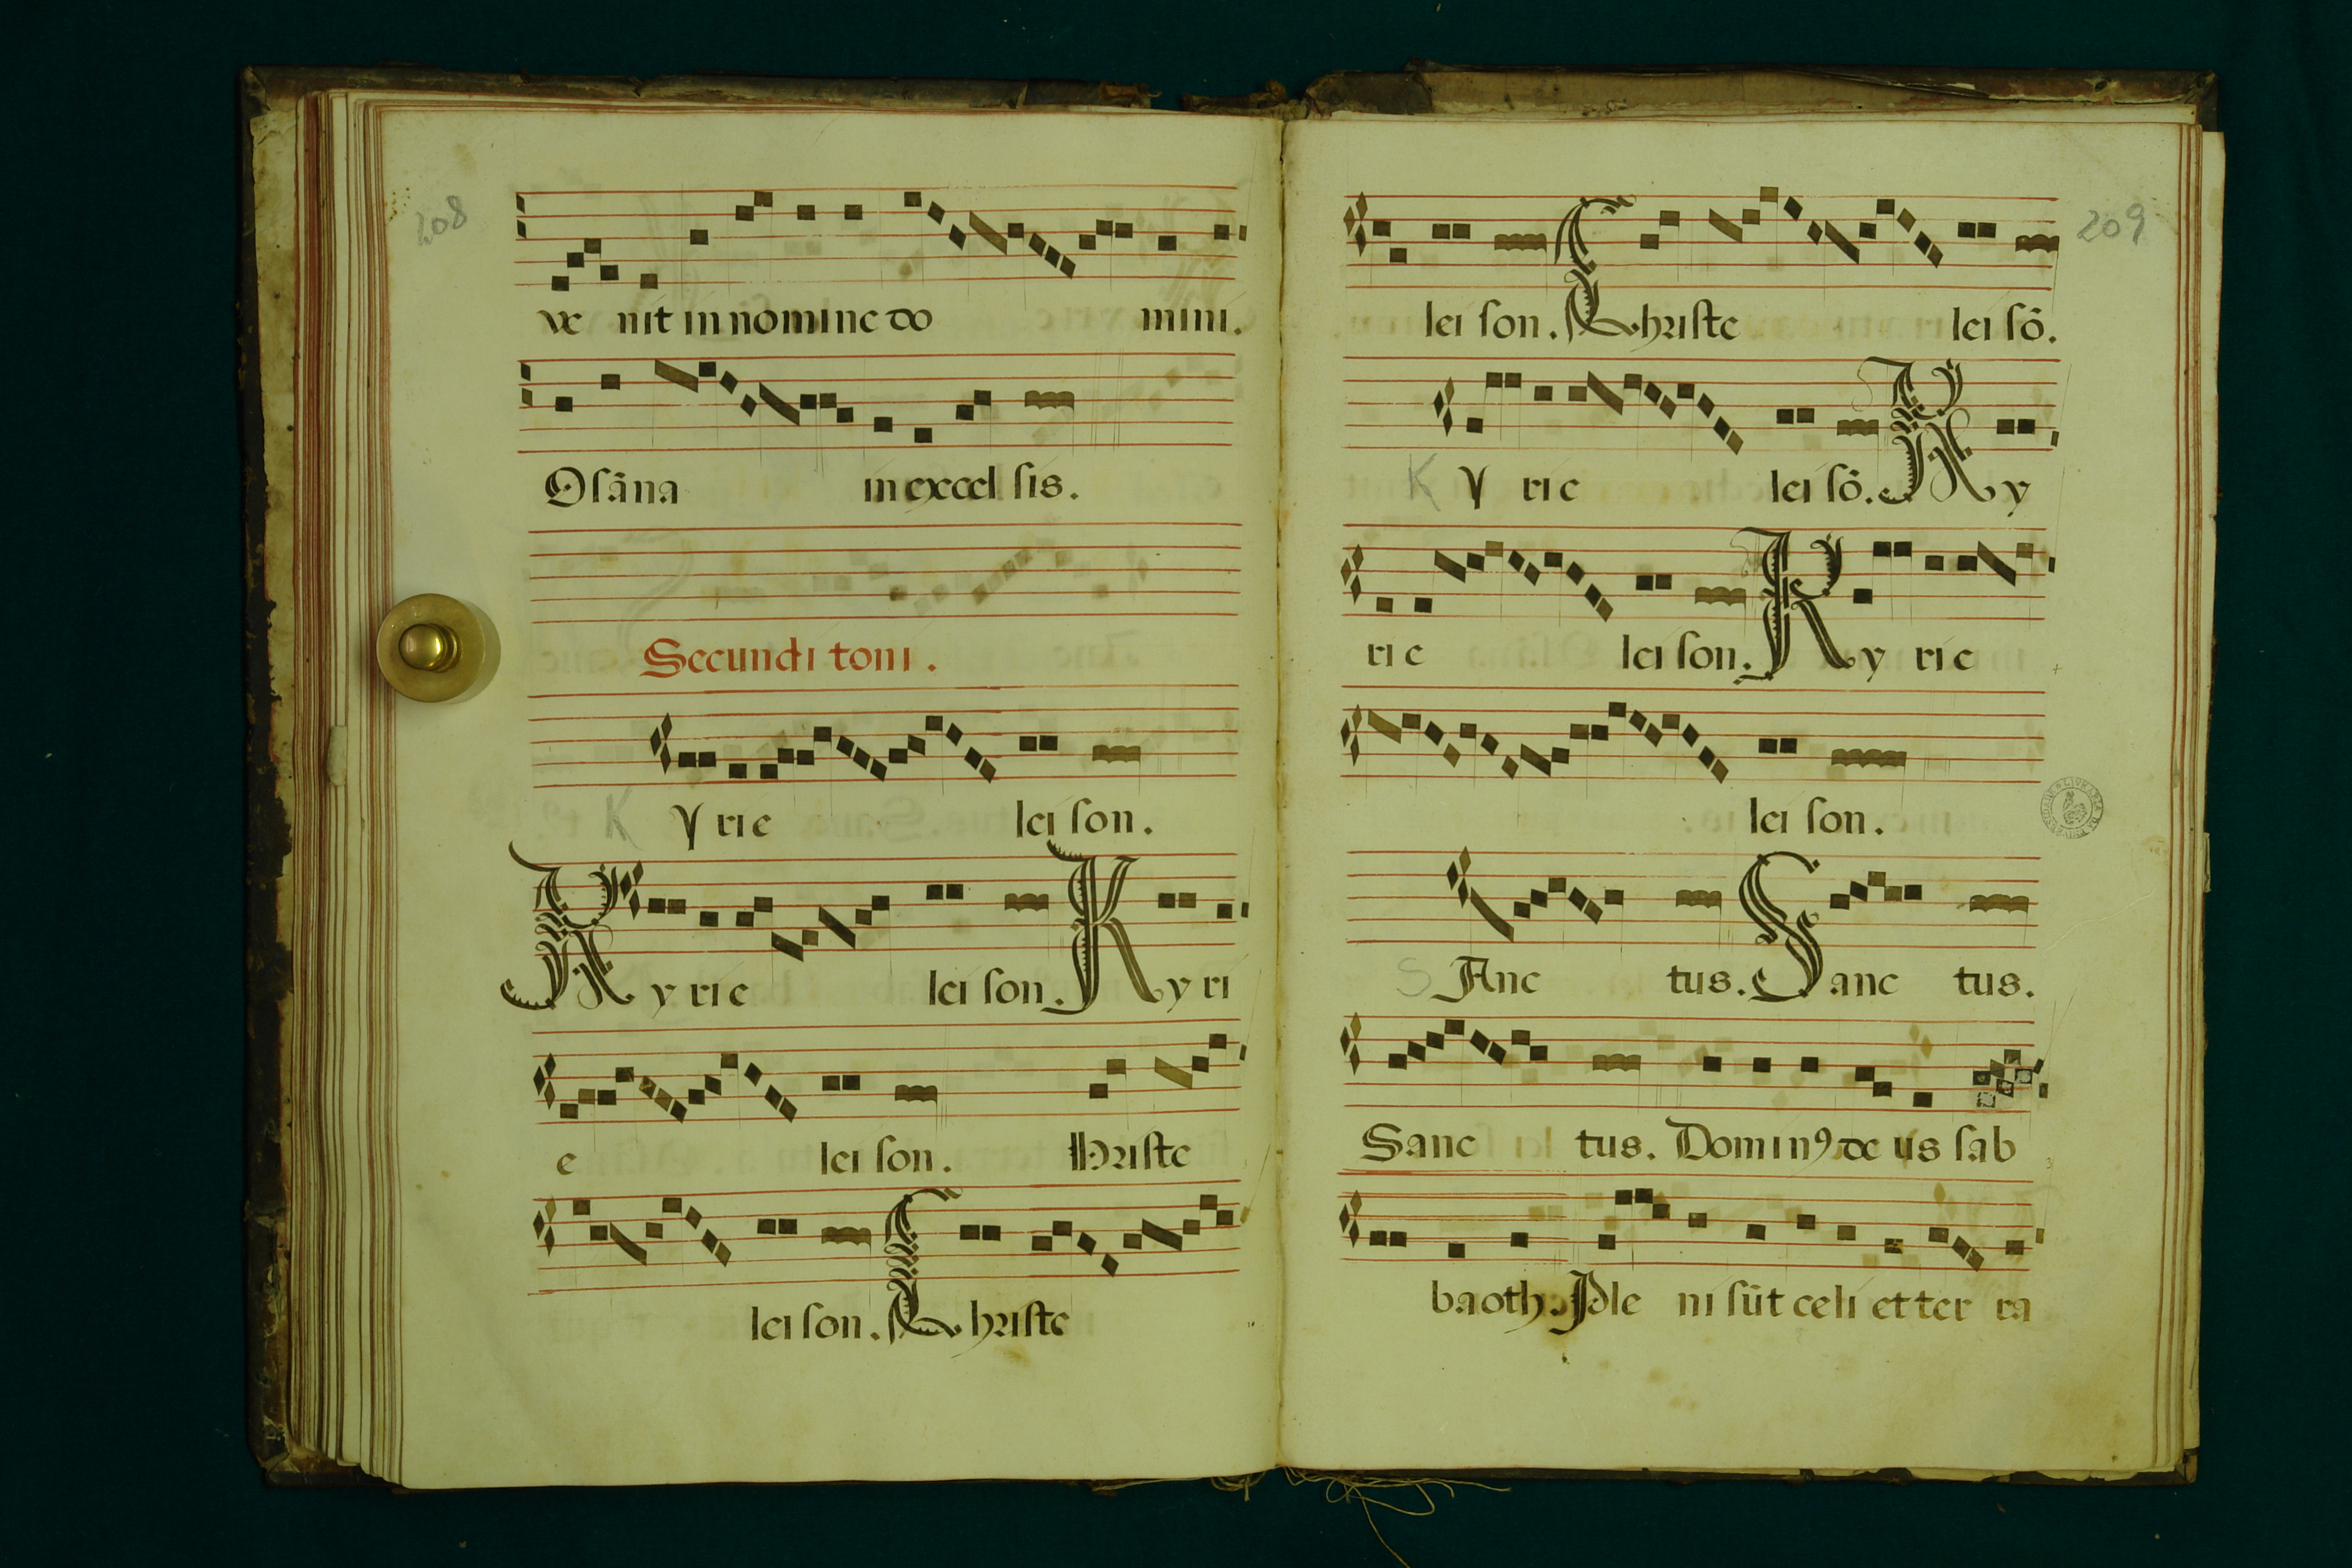 208
ve nit in nomine do mini.
Osãna in excel sis.
Secundi toni.
K y rie lei son.
Ky rie lei son. Ky ri
e lei son. hriste
lei son. Christe
209
lei son. Christe lei sõ.
K y rie lei sõ. Ky
rie lei son. Ky rie
lei son.
S Anc tus. Sanc tus.
Sanc tus. Dominꝯ de us sab
baoth. Ple ni sũt celi et ter ra